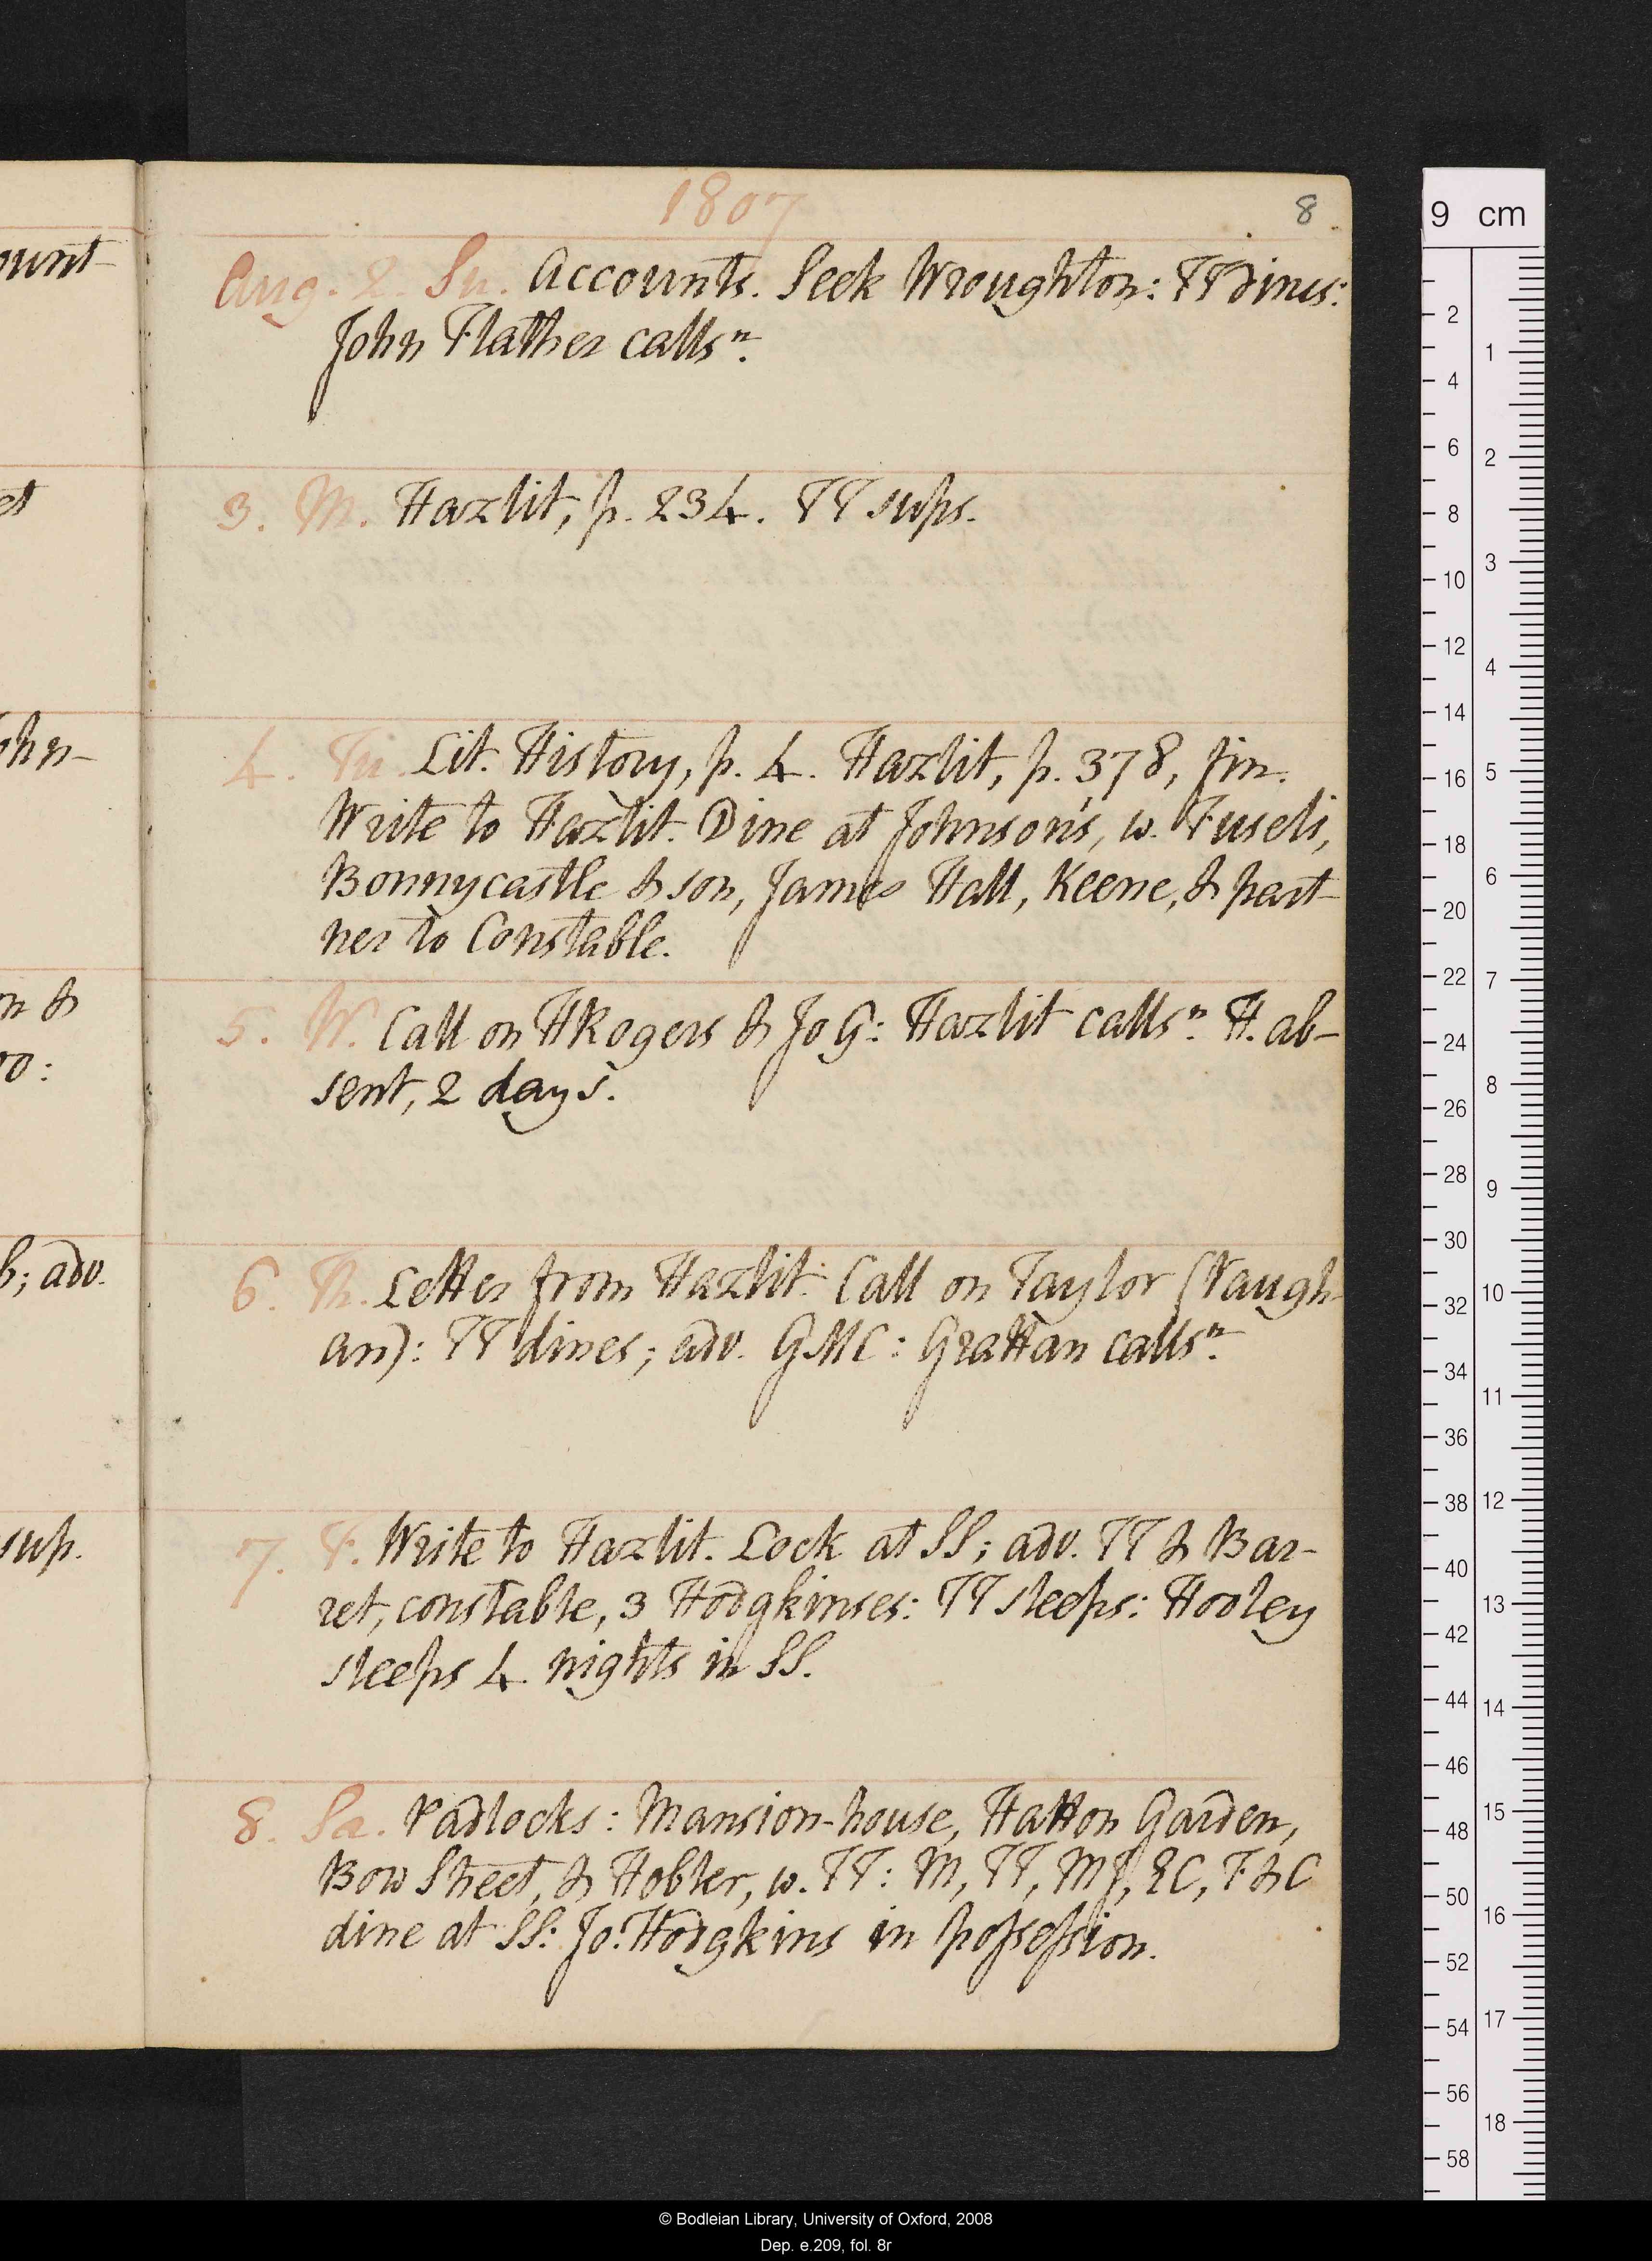 1807
8
Aug. 2. Su. Accounts. Seek Wroughton: TT dines:
John Flather calls n.
3. M. Hazlit, p. 234. TT sups.
4. Tu. Lit. History, p. 4. Hazlit, p. 378, fin.
Write to Hazlit. Dine at Johnson's, w. Fuseli,
Bonnycastle & son, James Hall, Keene, & part-
ner to Constable.
5. W. Call on HRogers & Jo G: Hazlit calls n. H. ab-
sent, 2 days.
6. Th. Letter from Hazlit. Call on Taylor (Vaugh-
an): TT dines; adv. GMC: Grattan calls n.
7. F. Write to Hazlit. Lock at SS; adv. TT & Bar-
ret, constable, 3 Hodgkinses: TT sleeps: Hooley
sleeps 4 nights in SS.
8. Sa. Padlocks: Mansion-house, Hatton Garden,
Bow Street, & Hobler, w. TT: M, TT, MJ, EC, F & C
dine at SS: Jo. Hodgkins in possession.
ount
et
ohn-
on &
oo:
b; adv.
sup.
9 cm
2
4
6
8
10
12
14
16
18
20
22
24
26
28
30
32
34
36
38
40
42
44
46
48
50
52
54
56
58
1
2
3
4
5
6
7
8
9
10
11
12
13
14
15
16
17
18
© Bodleian Library, University of Oxford, 2008
Dep. e.209, fol. 8r